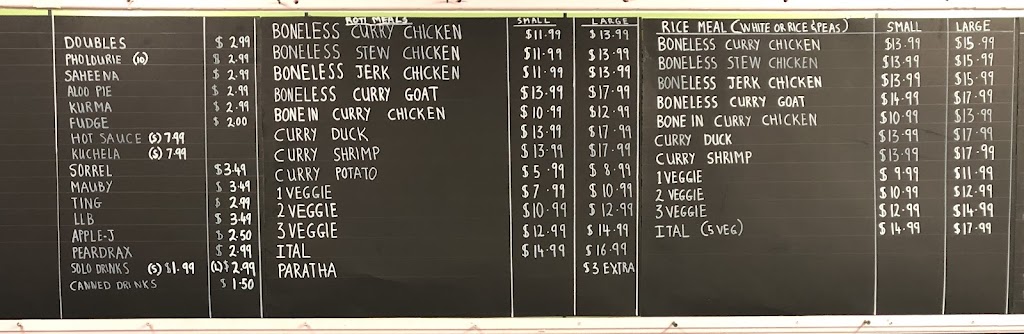 DOUBLES $ 2.99
PHOLOURIE (10) $ 2.99
SAHEENA $ 2.99
ALOO PIE $ 2.99
KURMA $ 2.99
FUDGE $ 2.00
HOT SAUCE (S) 7.99
KUCHELA (S) 7.99
SORREL $3.49
MAUBY $ 3.49
TING $ 2.99
LLB $ 3.49
APPLE-J $ 2.50
PEARDRAX $ 2.99
SOLO DRINKS (S) $1.99 (L) $ 2.99
CANNED DRINKS $ 1.50
ROTI MEALS SMALL LARGE
BONELESS CURRY CHICKEN $11.99 $ 13.99
BONELESS STEW CHICKEN $11.99 $13.99
BONELESS JERK CHICKEN $11.99 $13.99
BONELESS CURRY GOAT $13.99 $17.99
BONE IN CURRY CHICKEN $10.99 $12.99
CURRY DUCK $13.99 $17.99
CURRY SHRIMP $13.99 $17.99
CURRY POTATO $5.99 $ 8.99
1 VEGGIE $7.99 $10.99
2 VEGGIE $10.99 $ 12.99
3 VEGGIE $12.99 $ 14.99
ITAL $14.99 $16.99
PARATHA $3 EXTRA
RICE MEAL (WHITE OR RICE & PEAS) SMALL LARGE
BONELESS CURRY CHICKEN $13.99 $15.99
BONELESS STEW CHICKEN $13.99 $15.99
BONELESS JERK CHICKEN $13.99 $15.99
BONELESS CURRY GOAT $14.99 $17.99
BONE IN CURRY CHICKEN $10.99 $13.99
CURRY DUCK $13.99 $17.99
CURRY SHRIMP $13.99 $17.99
1 VEGGIE $ 9.99 $11.99
2 VEGGIE $10.99 $12.99
3 VEGGIE $12.99 $14.99
ITAL (5 VEG) $ 14.99 $17.99